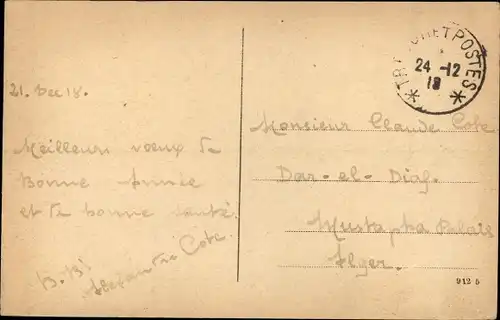 21. Dec 18.
Meilleurs voeux de
Bonne Année
et de bonne santé.
Cote.
TRESOR ET POSTES
24 -12
18
Monsieur Claude Cote
Dar-el-Diaf.
Mustapha Palais
Alger.
912 5